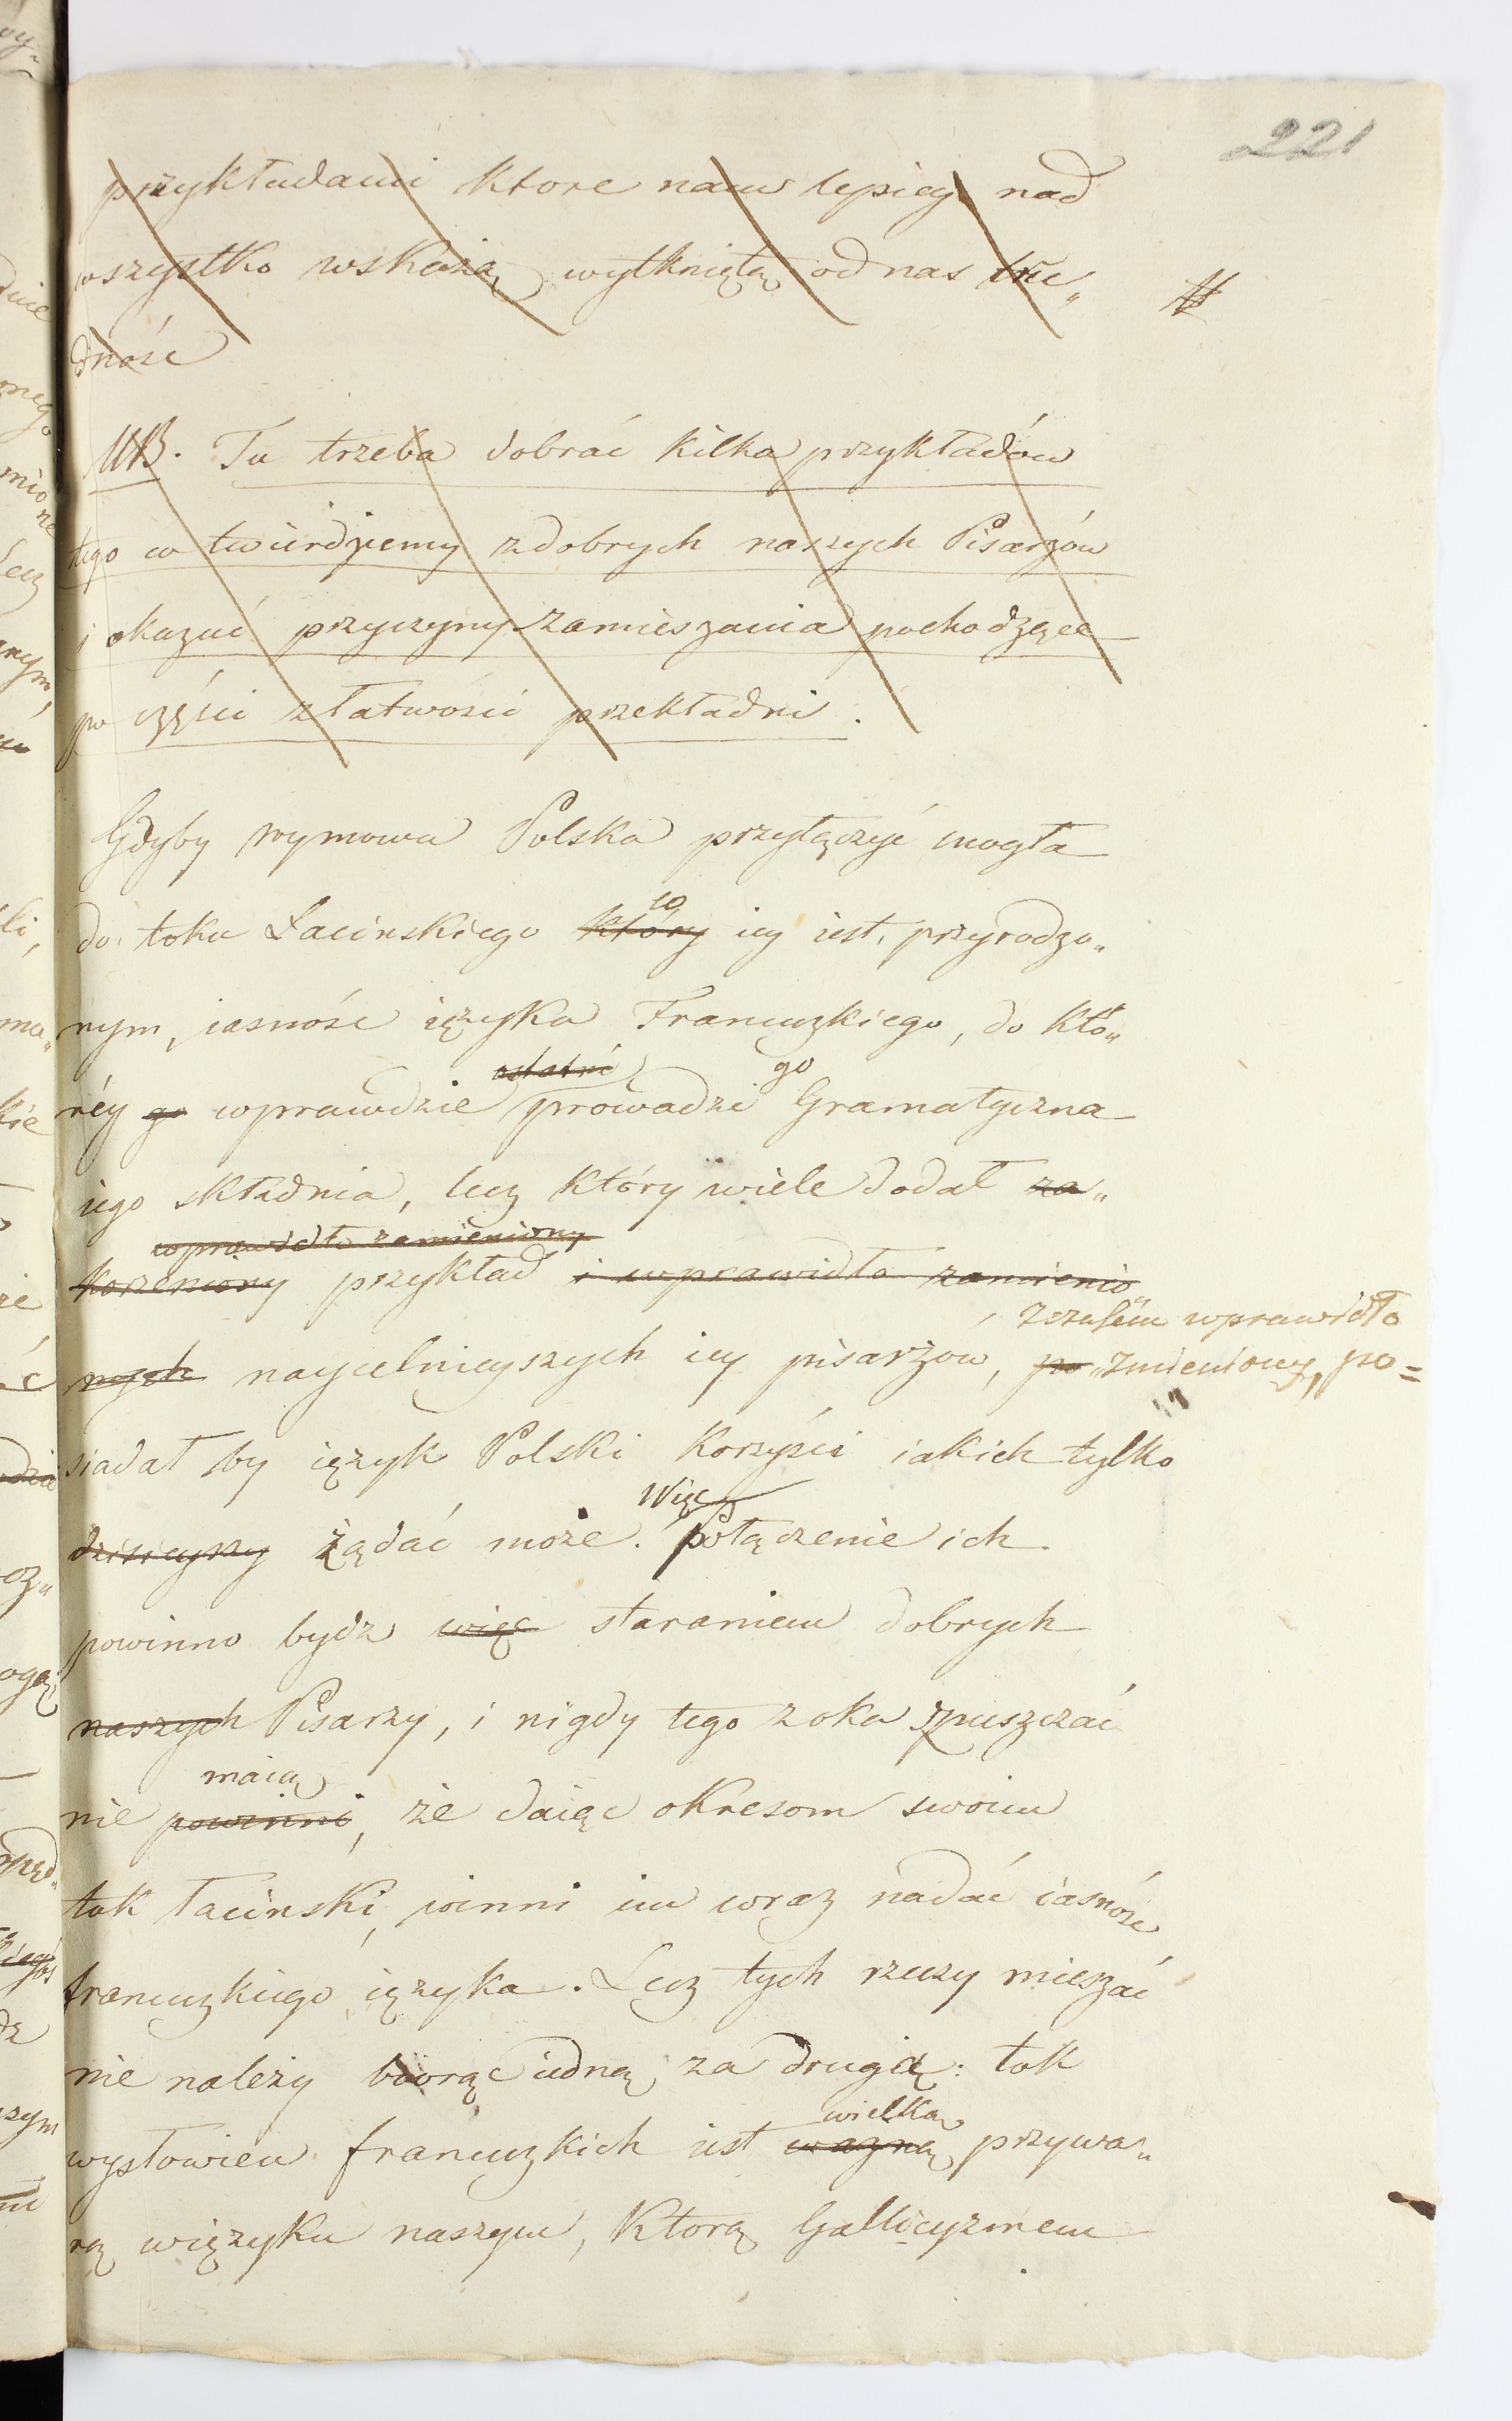 221
przykładami ktore nam lepiey nad
wszystko wskażą wytkniętą od nas tru„
dność
NB. Tu trzeba dobrać kilka przykładów
tego co twierdziemy z dobrych naszych Pisarzów
i okazać przyczyny zamieszania pochodzące
po części z łatwości przekładni.
Gdyby wymowa Polska przyłączyć mogła
co
do toku Łacinskiego który iey iest, przyrodzo„
nym, iasność ięzyka Francuzkiego, do któ„
ostatni go
réy go wprawdzie prowadzi Gramatyczna
iego składnia, lecz który wiele dodał za„
wprawidło zamieniony
korzeniony przykład i wprawidło zamienio„
z czasem wprawidło
nych naycelnieyszych iey pisarzow, po zmieniony, po=
siadał by ięzyk Polski korzyści iakich tylko
Więc
dzisieyszy żądać może. połączenie ich
powinno bydz więc staraniem dobrych
naszych Pisarzy, i nigdy tego z oka spuszczać
maią
nie powinni, że daiąc okresom swoim
tok łacinski, winni im wraz nadać iasność
francuzkiego ięzyka. Lecz tych rzeczy mieszać
nie należy biorąc iedną za drugą: tok
wielką
wysłowien francuzkich iest ważną przywa„
rą więzyku naszym, którą Gallicyzmem